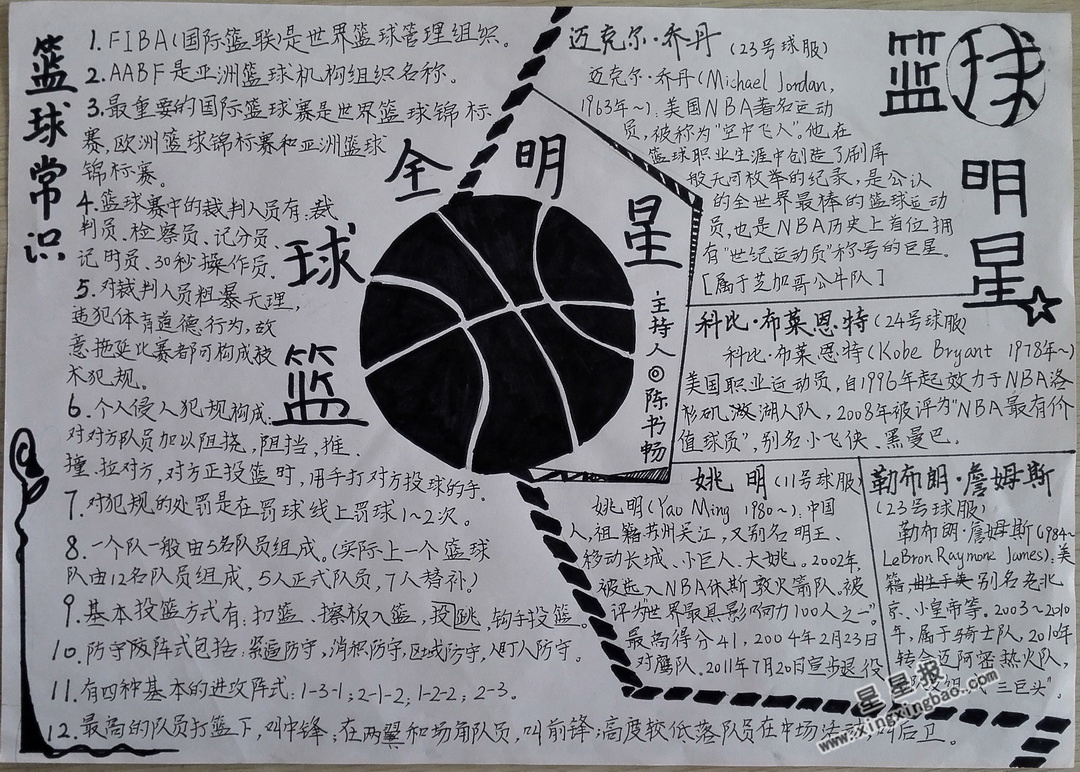 篮球常识
1.FIBA(国际篮联)是世界篮球管理组织。
2.AABF是亚洲篮球机构组织名称。
3.最重要的国际篮球赛是世界篮球锦标
赛,欧洲篮球锦标赛和亚洲篮球
锦标赛。
4.篮球赛中的裁判人员有:裁
判员、检察员、记分员、
记时员、30秒操作员.
5.对裁判人员粗暴无理,
违犯体育道德行为,故
意拖延比赛都可构成技
术犯规。
6.个人侵人犯规构成:
对对方队员加以阻挠,阻挡,推、
撞、拉对方,对方正投篮时,用手打对方投球的手.
7.对犯规的处罚是在罚球线上罚球1~2次。
8.一个队一般由5名队员组成。(实际上一个篮球
队由12名队员组成,5人正式队员,7人替补)
9.基本投篮方式有:扣篮、擦板入篮,投跳,钩手投篮。
10.防守陂阵式包括:紧迫防守,消积防守,区域防守,人盯人防守。
11.有四种基本的进攻阵式:1-3-1;2-1-2,1-2-2;2-3。
12.最高的队员打篮下,叫中锋;在两翼和场角队员,叫前锋;高度较低落队员在中场活动,叫后卫。
篮球全明星
主持人◎陈书畅
篮球明星
迈克尔·乔丹(23号球服)
迈克尔·乔丹(Michael Jordan,
1963年~):美国NBA著名运动
员,被称为"空中飞人"。他在
篮球职业生涯中创造了刷屏
般无可枚举的纪录,是公认
的全世界最棒的篮球运动
员,也是NBA历史上首位拥
有"世纪运动员"称号的巨星。
[属于芝加哥公牛队]
科比·布莱恩特(24号球服)
科比·布莱恩特(Kobe Bryant 1978年~)
美国职业运动员,自1996年起效力于NBA洛
杉矶湖人队,2008年被评为"NBA最有价
值球员",别名小飞侠、黑曼巴。
姚明(11号球服)
姚明(Yao Ming 1980~):中国
人,祖籍苏州吴江,又别名明王、
移动长城、小巨人、大姚。2002年,
被选入NBA休斯敦火箭队。被
评为"世界最具影响力100人之一"。
最高得分41,2004年2月23日
对鹰队。2011年7月20日宣步退役
勒布朗·詹姆斯
(23号球服)
勒布朗·詹姆斯(1984~
LeBron Raymone James):美
籍 别名老北
京、小皇帝等。2003~2010
年,属于骑士队,2010年
转会迈阿密热火队,
"三巨头"。
星星报
www.xingxingbao.com